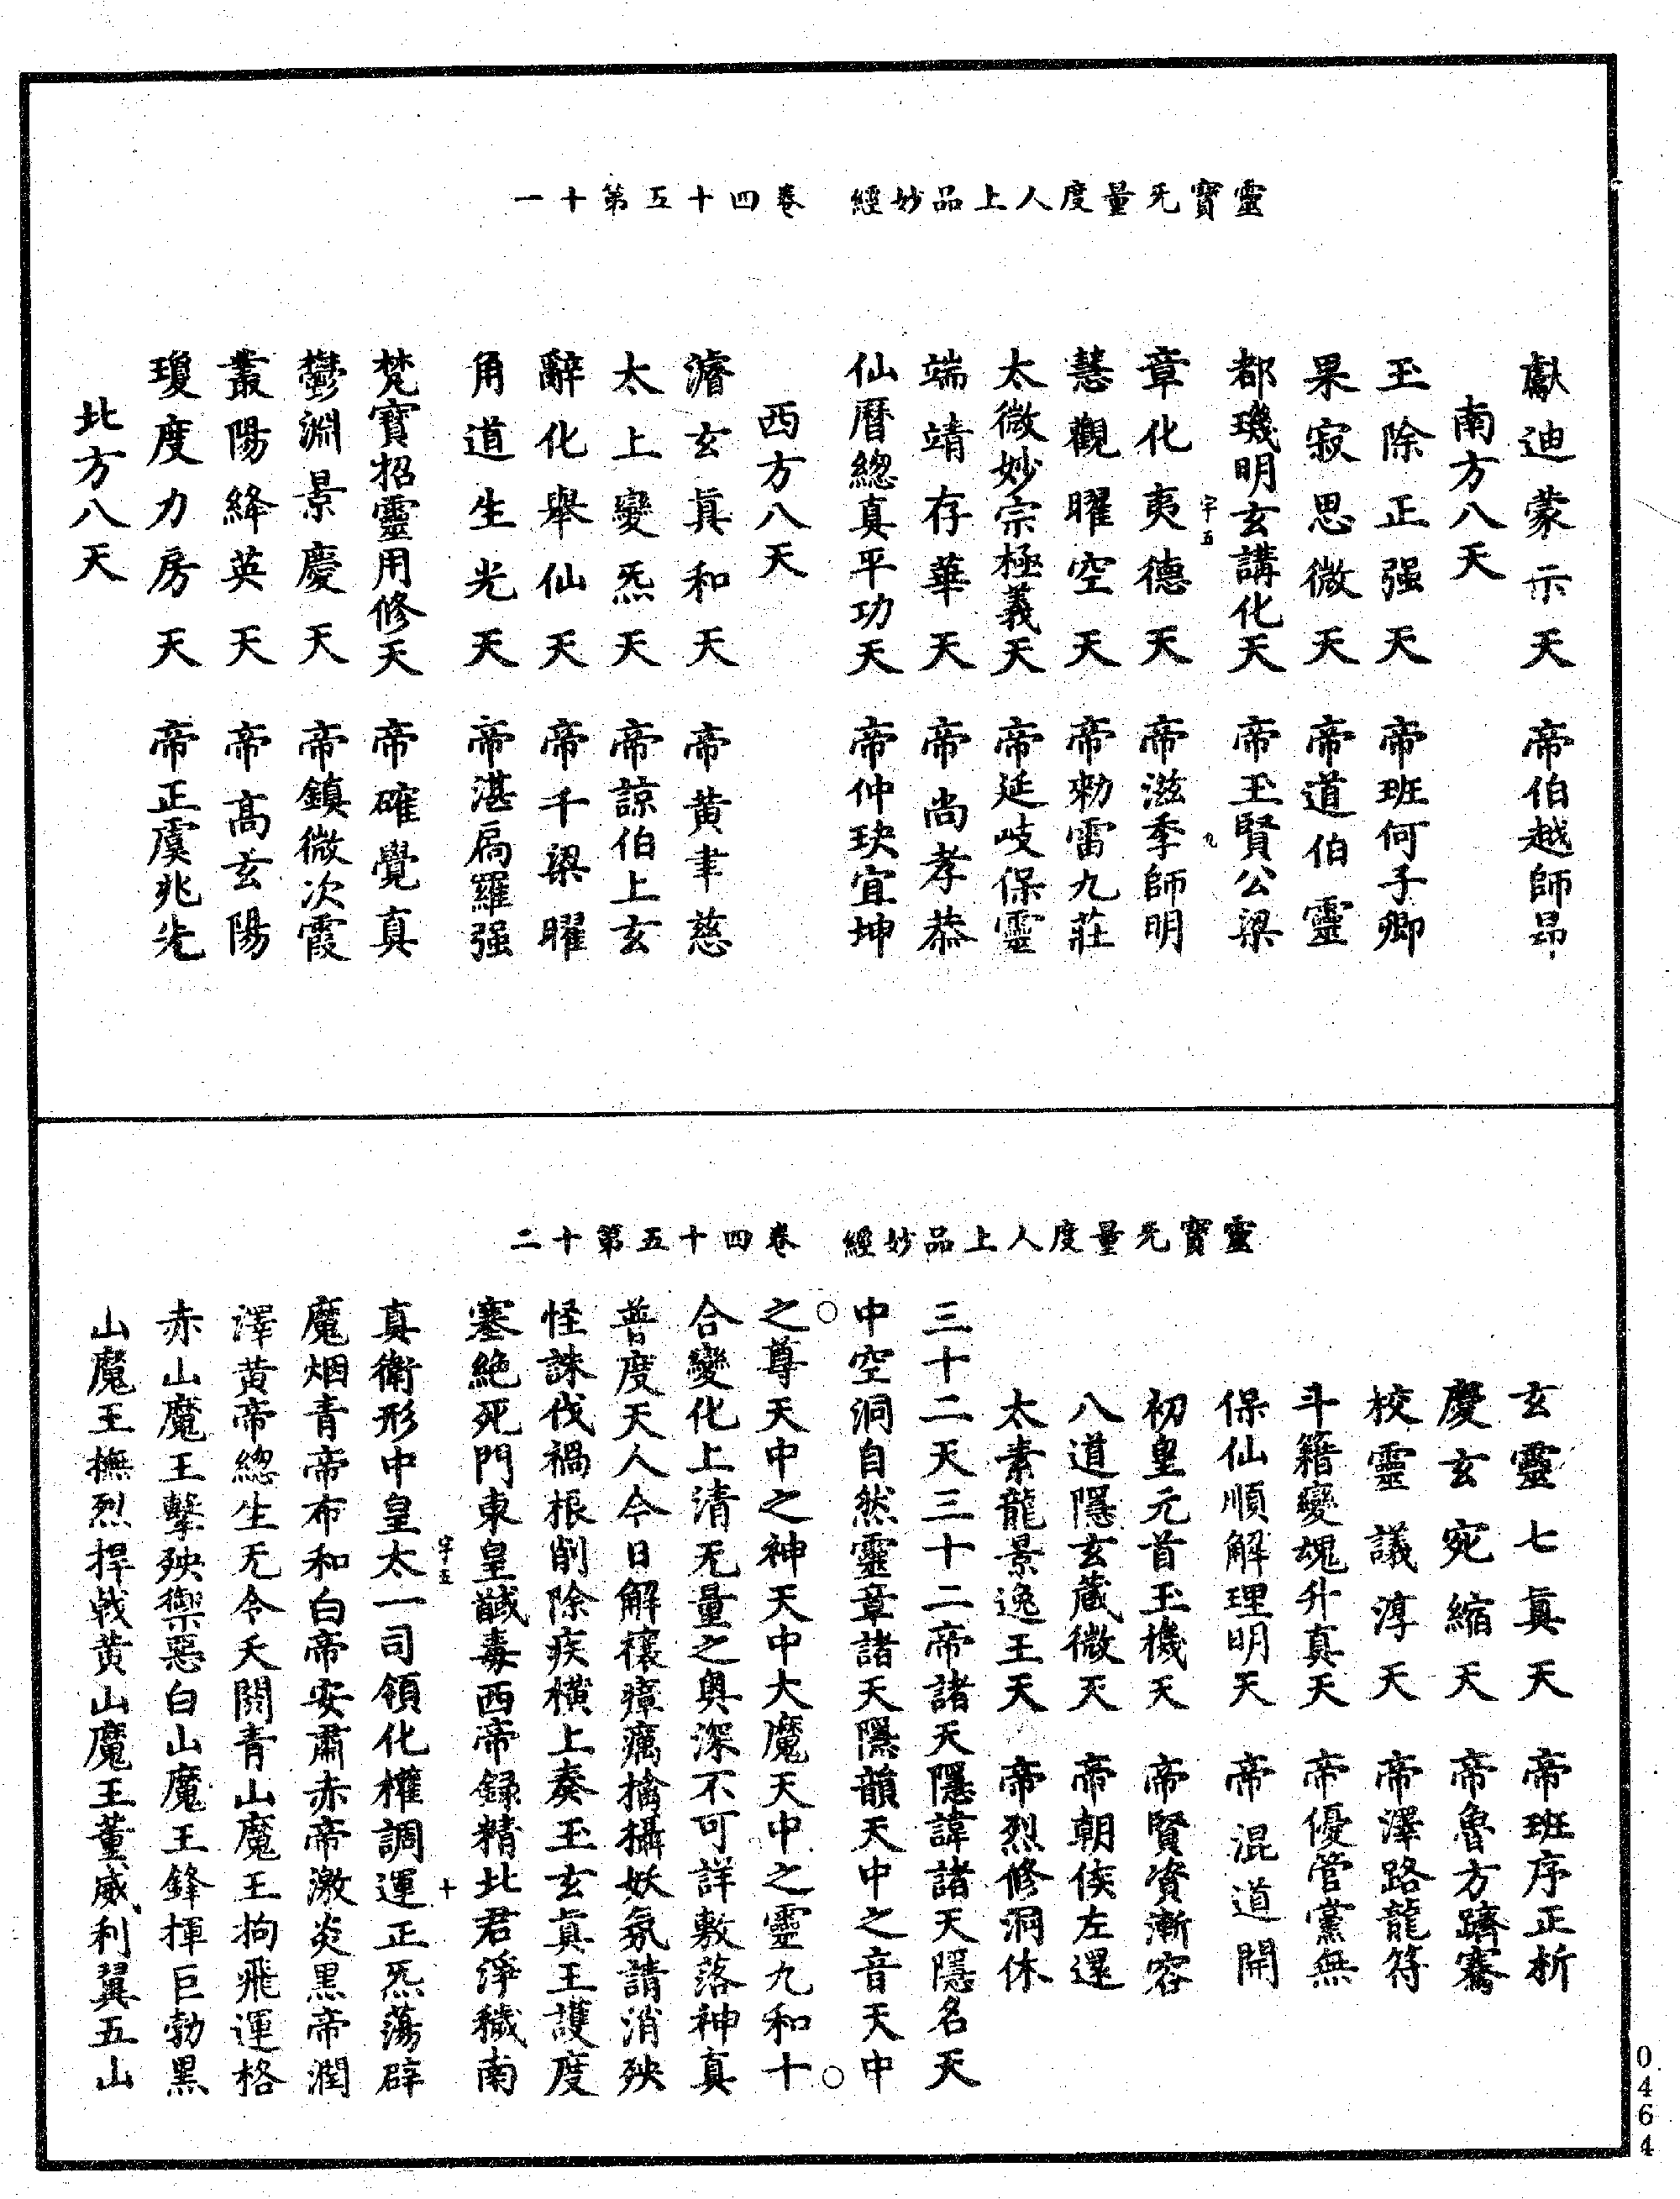 靈寶旡量度人上品妙經 卷四十五第十一
獻迪蒙示天 帝伯越師昂
南方八天
玉除正强天 帝班何子卿
果寂思微天 帝道伯靈
都璣明玄講化天 帝玉賢公梁
宇五 九
章化夷德天 帝滋季師明
慧觀曜空天 帝勑雷九莊
太微妙宗極義天 帝延岐保靈
端靖存華天 帝尚孝恭
仙曆總真平功天 帝仲玦宜坤
西方八天
濬玄真和天 帝黄聿慈
太上變炁天 帝諒伯上玄
辭化舉仙天 帝千梁曜
角道生光天 帝湛扃羅强
梵寶招靈用修天 帝確覺真
鬱淵景慶天 帝鎮微次霞
叢陽絳英天 帝高玄陽
瓊度力房天 帝正虞兆先
北方八天
靈寶旡量度人上品妙經 卷四十五第十二
玄靈七真天 帝班序正析
慶玄宛縮天 帝魯方躋騫
校靈議淳天 帝澤路龍符
斗籍變魂升真天 帝優管黨無
保仙順解理明天 帝混道開
初皇元首玉機天 帝賢資漸容
八道隱玄蔵微天 帝朝侯左還
太素龍景逸王天 帝烈修洞休
三十二天三十二帝諸天隱諱諸天隱名天
中空洞自然靈章諸天隱韻天中之音天中
之尊天中之神天中大魔天中之靈九和十
合變化上清无量之奥深不可詳敷落神真
普度天人今日解禳瘴癘擒攝妖氛請消殃
怪誅伐禍根削除疾横上奏玉玄真王護度
塞絶死門東皇馘毒西帝録精北君淨穢南
宇五 十
真衛形中皇太一司領化權調運正炁蕩辟
魔烟青帝布和白帝安肅赤帝激炎黒帝潤
澤黄帝總生无令夭閼青山魔王拘飛運格
赤山魔王擊殃禦惡白山魔王鋒揮巨勃黒
山魔王撫烈捍戟黄山魔王董威利翼五山
0464